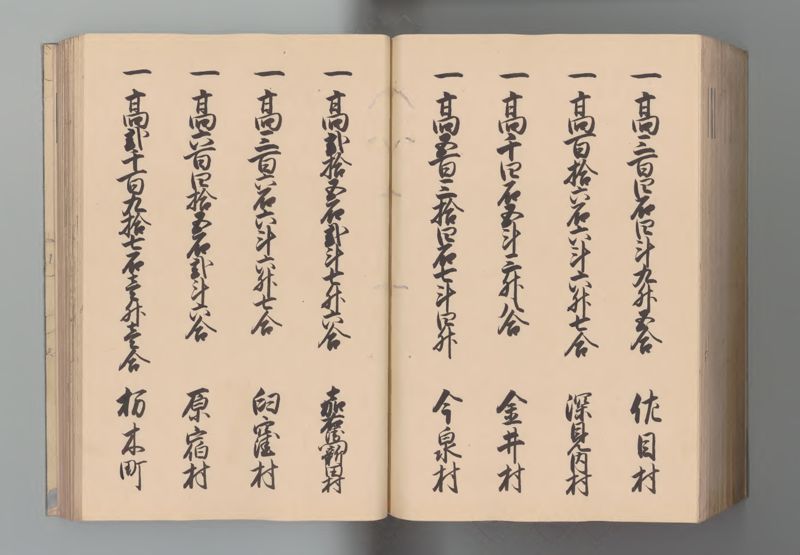 一高三百四石四斗九升五合 佐目村
一高百拾六石六斗六升七合 深見内村
一高千四石五斗三升八合 金井村
一高五百三拾四石七斗四升 今泉村
一高弐拾五石弐斗七升六合 嘉右衛門新田村
一高三百六石六斗六升七合 臼窪村
一高六百四拾五石弐斗六合 原宿村
一高弐千百九拾七石壱升壱合 栃木町